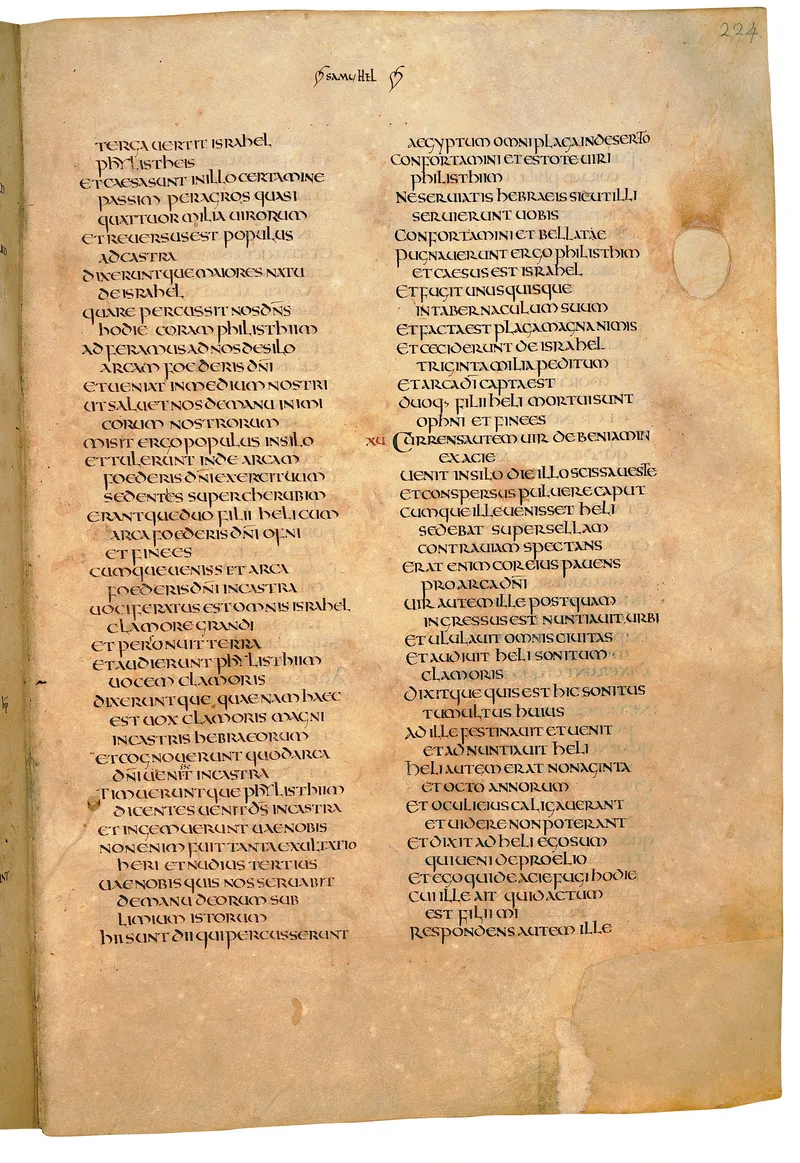 224
SAMUHEL
TERGA UERTIT ISRAHEL
PHYLISTHEIS
ET CAESA SUNT IN ILLO CERTAMINE
PASSIM PER AGROS QUASI
QUATTUOR MILIA UIRORUM
ET REUERSUS EST POPULUS
AD CASTRA
DIXERUNTQUE MAIORES NATU
DE ISRAHEL
QUARE PERCUSSIT NOS DN̄S
HODIE CORAM PHILISTHIIM
ADFERAMUS AD NOS DE SILO
ARCAM FOEDERIS DN̄I
ET UENIAT IN MEDIUM NOSTRI
UT SALUET NOS DE MANU INIMI
CORUM NOSTRORUM
MISIT ERGO POPULUS IN SILO
ET TULERUNT INDE ARCAM
FOEDERIS DN̄I EXERCITUUM
SEDENTES SUPER CHERUBIM
ERANTQUE DUO FILII HELI CUM
ARCA FOEDERIS DN̄I OFNI
ET FINEES
CUMQUE UENISSET ARCA
FOEDERIS DN̄I IN CASTRA
UOCIFERATUS EST OMNIS ISRAHEL
CLAMORE GRANDI
ET PERSONUIT TERRA
ET AUDIERUNT PHYLISTHIIM
UOCEM CLAMORIS
DIXERUNTQUE QUAENAM HAEC
EST UOX CLAMORIS MAGNI
IN CASTRIS HEBRAEORUM
ET COGNOUERUNT QUOD ARCA
DN̄I UENIT IN CASTRA
TIMUERUNTQUE PHYLISTHIIM
DICENTES UENIT DS̄ IN CASTRA
ET INGEMUERUNT UAE NOBIS
NON ENIM FUIT TANTA EXULTATIO
HERI ET NUDIUS TERTIUS
UAE NOBIS QUIS NOS SERUABIT
DE MANU DEORUM SUB
LIMIUM ISTORUM
HII SUNT DII QUI PERCUSSERUNT
AEGYPTUM OMNI PLAGA IN DESERTO
CONFORTAMINI ET ESTOTE UIRI
PHILISTHIIM
NE SERUIATIS HEBRAEIS SICUT ILLI
SERUIERUNT UOBIS
CONFORTAMINI ET BELLATAE
PUGNAUERUNT ERGO PHILISTHIM
ET CAESUS EST ISRAHEL
ET FUGIT UNUSQUISQUE
IN TABERNACULUM SUUM
ET FACTA EST PLAGA MAGNA NIMIS
ET CECIDERUNT DE ISRAHEL
TRIGINTA MILIA PEDITUM
ET ARCA DI̅ CAPTA EST
DUOQ; FILII HELI MORTUI SUNT
OPHNI ET FINEES
XU CURRENS AUTEM UIR DE BENIAMIN
EX ACIE
UENIT IN SILO DIE ILLO SCISSA UESTE
ET CONSPERSUS PULUERE CAPUT
CUMQUE ILLE UENISSET HELI
SEDEBAT SUPER SELLAM
CONTRA UIAM SPECTANS
ERAT ENIM COR EIUS PAUENS
PRO ARCA DN̄I
UIR AUTEM ILLE POSTQUAM
INGRESSUS EST NUNTIAUIT URBI
ET ULULAUIT OMNIS CIUITAS
ET AUDIUIT HELI SONITUM
CLAMORIS
DIXITQUE QUIS EST HIC SONITUS
TUMULTUS HUIUS
AD ILLE FESTINAUIT ET UENIT
ET ADNUNTIAUIT HELI
HELI AUTEM ERAT NONAGINTA
ET OCTO ANNORUM
ET OCULI EIUS CALIGAUERANT
ET UIDERE NON POTERANT
ET DIXIT AD HELI EGO SUM
QUI UENI DE PROELIO
ET EGO QUI DE ACIE FUGI HODIE
CUI ILLE AIT QUID ACTUM
EST FILII MI
RESPONDENS AUTEM ILLE